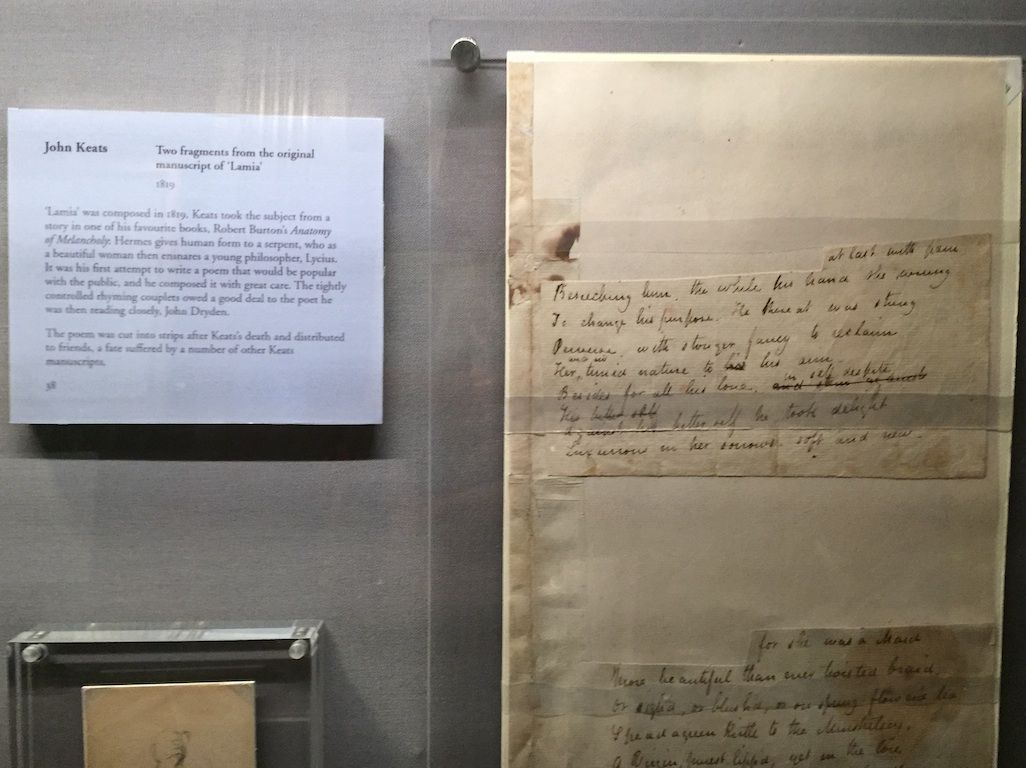 John Keats
Two fragments from the original
manuscript of ‘Lamia’
1819
‘Lamia’ was composed in 1819. Keats took the subject from a
story in one of his favourite books, Robert Burton’s Anatomy
of Melancholy. Hermes gives human form to a serpent, who as
a beautiful woman then ensnares a young philosopher, Lycius.
It was his first attempt to write a poem that would be popular
with the public, and he composed it with great care. The tightly
controlled rhyming couplets owed a good deal to the poet he
was then reading closely, John Dryden.
The poem was cut into strips after Keats’s death and distributed
to friends, a fate suffered by a number of other Keats
manuscripts.
38
at last with pain
Beseeching him, the while his hand she wrung
To change his purpose. He thereat was stung
Perverse, with stronger fancy to reclaim
Her timid nature to his aim
Besides for all his love, in self despite
and stern against
his better self
Against his better self he took delight
Luxurious in her sorrows soft and new
for she was a Maid
More beautiful than ever twisted braid
Or sigh'd, or blush'd, or on spring flowered lea
Spread a green kirtle to the Minstrelsey.
A Virgin, purest lipp'd, yet in the lore